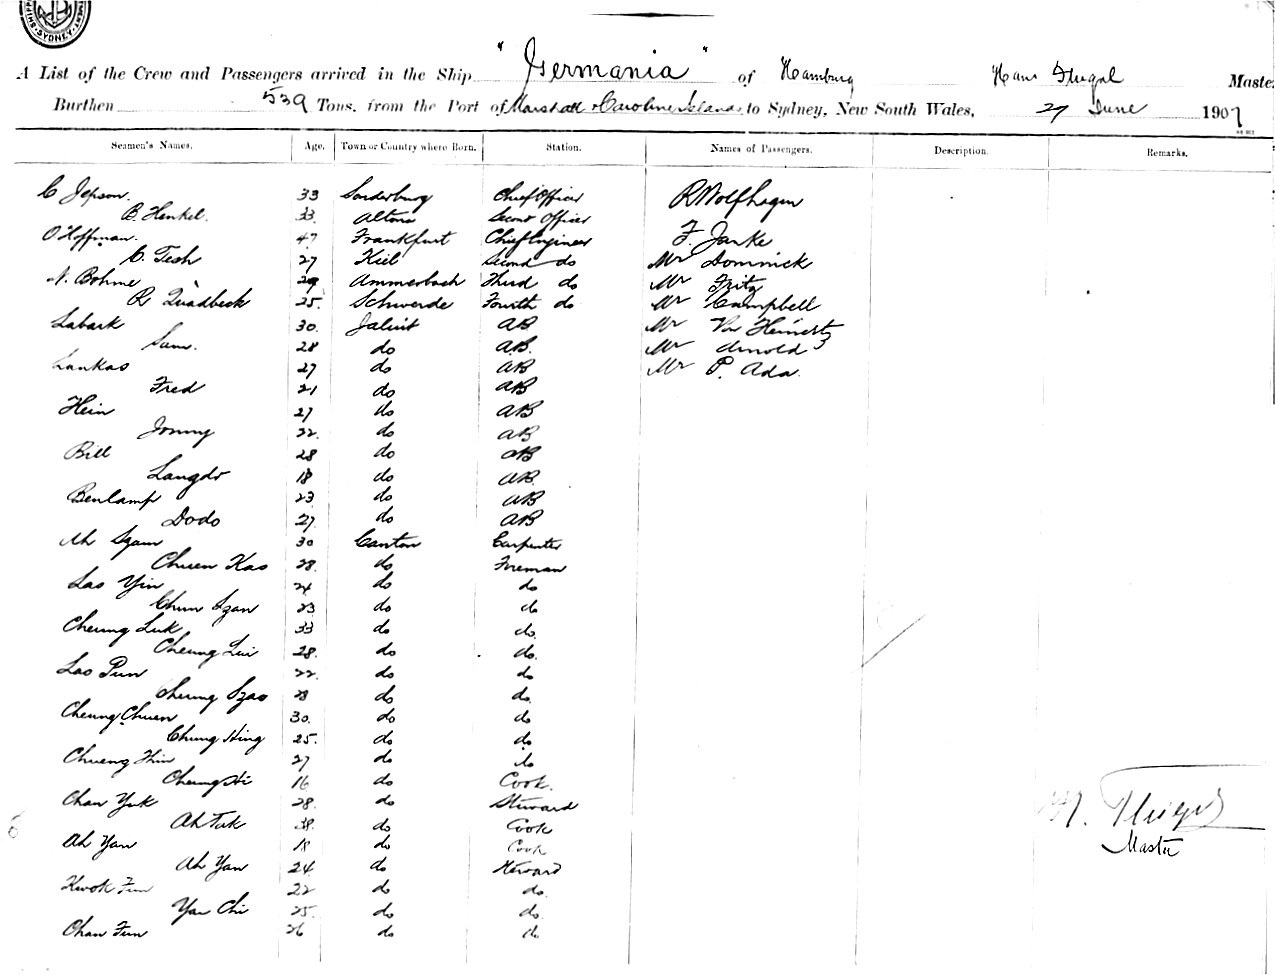 SYDNEY
"Germania" of Hamburg Hans Fluegel
A List of the Crew and Passengers arrived in the Ship Master
Burthen 539 Tons, from the Port of Marshall & Caroline Islands to Sydney, New South Wales, 27 June 1907
Seamen's Names. Age. Town or Country where Born. Station. Names of Passengers. Description. Remarks.
C Jepson. 33 Sonderburg Chief Officer R Wolfhagen
B. Henkel. 33. Altona Second Officer
O Hoffman. 47 Frankfurt Chief Engineer F. Janke
C. Tesh 27 Kiel Second do Mr Dominick
N. Bohme 29 Ammersbach Third do Mr Fritz
R Quadbeck 25. Schwerde Fourth do Mr Campbell
Labark 30. Jaluit AB Mr Von
Sam. 28 do AB. Mr Arnold
Lankas 27 do AB Mr P. Ada.
Fred 21 do AB
Hein 27 do AB
Jonny 22. do AB
Bill 28 do AB
Langdo 18 do AB.
Benlamp 23 do AB
Dodo 27. do AB
Ah Szam 30 Canton Carpenter
Chuen Kao 28. do Fireman
Lao Yin 24 do do
Chun Szan 23 do do
Cheung Luk 33 do do.
Cheung Lui 28. do do.
Lao Pun 22. do do
Cheung Szao 28 do do.
Cheung Chuen 30. do do
Chung Hing 25. do do
Chueng Hin 27 do do
Cheung Hi 16 do Cook.
Chan Yuk 28. do Steward
Ah Tuk 38. do Cook
Ah Yan 18 do Cook
Ah Yan 24 do Steward
Kwok Fun 22 do do.
Yau Chi 25. do do.
Chan Fun 26 do do
H. Fluegel
Master